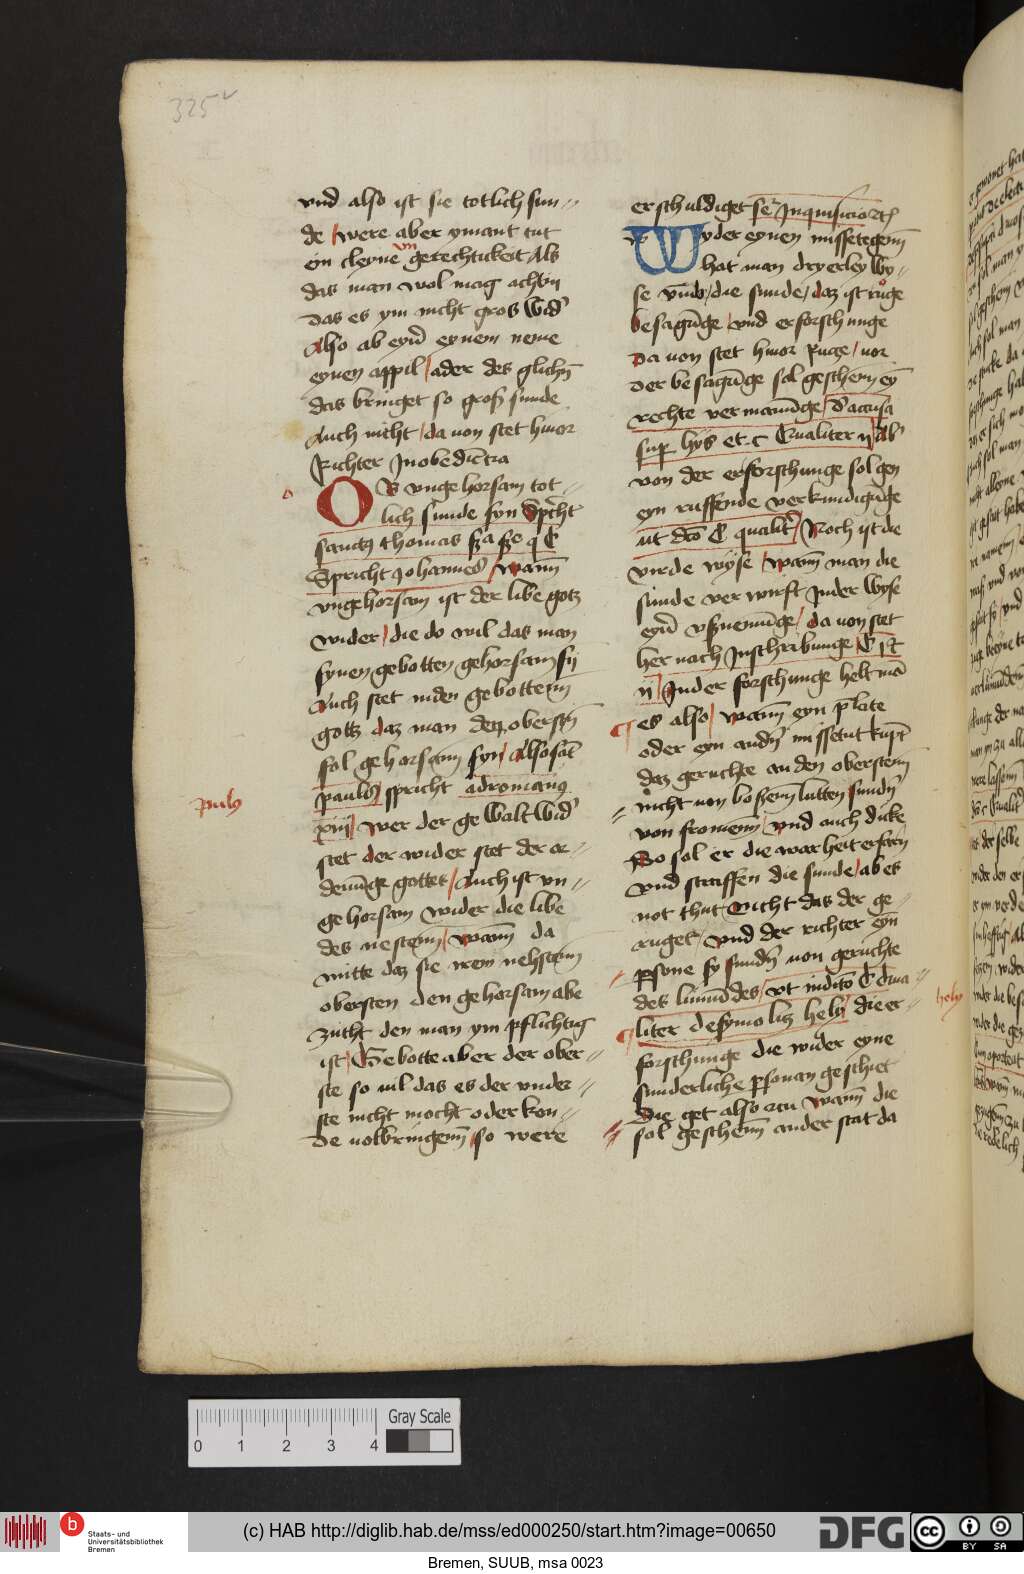 325v
vnd also ist sie totlich sun-
de were aber ymant tut
ein cleyne vn gerechtickeit Als
das man wol mag achtin
das es ym nicht gros wid'
Also ab eyn' eynem neme
eynen appil ader des glichn
das bringet so gross sunde
Auch nicht da uon stet hiuor
Richter Inobediencia
O B vngehorsam tot-
lich sunde syn Spricht
sanctus thomas
Spricht Johannes wann
vngehorsam ist der libe gotz
wider die do wil das man
synen gebotten gehorsam sy
Auch stet inden gebottenn
gottz daz man den oberstn
sol gehorsam syn Also sant
paulus spricht adromanos
xiij wer der gewalt wid'
stet der wider stet der or-
denunge gottes Auch ist vn-
gehorsam wider die libe
des nestenn wann da
mitte daz sie irem nehstenn
obersten den gehorsam abe
zucht den man ym pflichtig
ist Gebotte aber der ober-
ste so uil das es der vnder-
ste nicht mocht oder kon-
de uolbringenn so were
paulus
erschuldiget se' Inquisicio
W yder eynen missetegenn
hat man dryerley wy-
se vmb die sunde daz ist ruge
besagunge vnd erforschunge
Da uon stet hiuor Ruge uor
der besagunge sol geschenn eyn
rechte vermanunge d' accusa
sup hijs etc Qualiter ij Ab'
von der erforschunge sol gen
eyn ruffende verkundigunge
ut dco C qualit' Noch ist die
virde wyse wann man die
sunde ver wirft Inder wyse
eyn' vsznemunge da uon stet
her nach Inschribunge
ij Inder forschunge helt man
es also wann eyn plate
oder eyn andn' missetut kupt
daz geruchte an den oberstenn
nicht uon boszenn lutten sundn'
von fromenn vnd auch dicke
So sol er die warheit erfarn
vnd straffen die sunde ab es
not thut Nicht das der ge-
ruget vnd der richter eyn
psone sy sundn' uon geruchte
des lumundes vt indito C Qua-
liter desymo lis hely die er-
forschunge die wider eyne
sunderliche psonan geschiet
Die get also zcu wann die
sol geschenn ander stat da
hely
0 1 2 3 4
Gray Scale
Staats- und
Universitätsbibliothek
Bremen
(c) HAB http://diglib.hab.de/mss/ed000250/start.htm?image=00650
DFG
cc BY SA
Bremen, SUUB, msa 0023